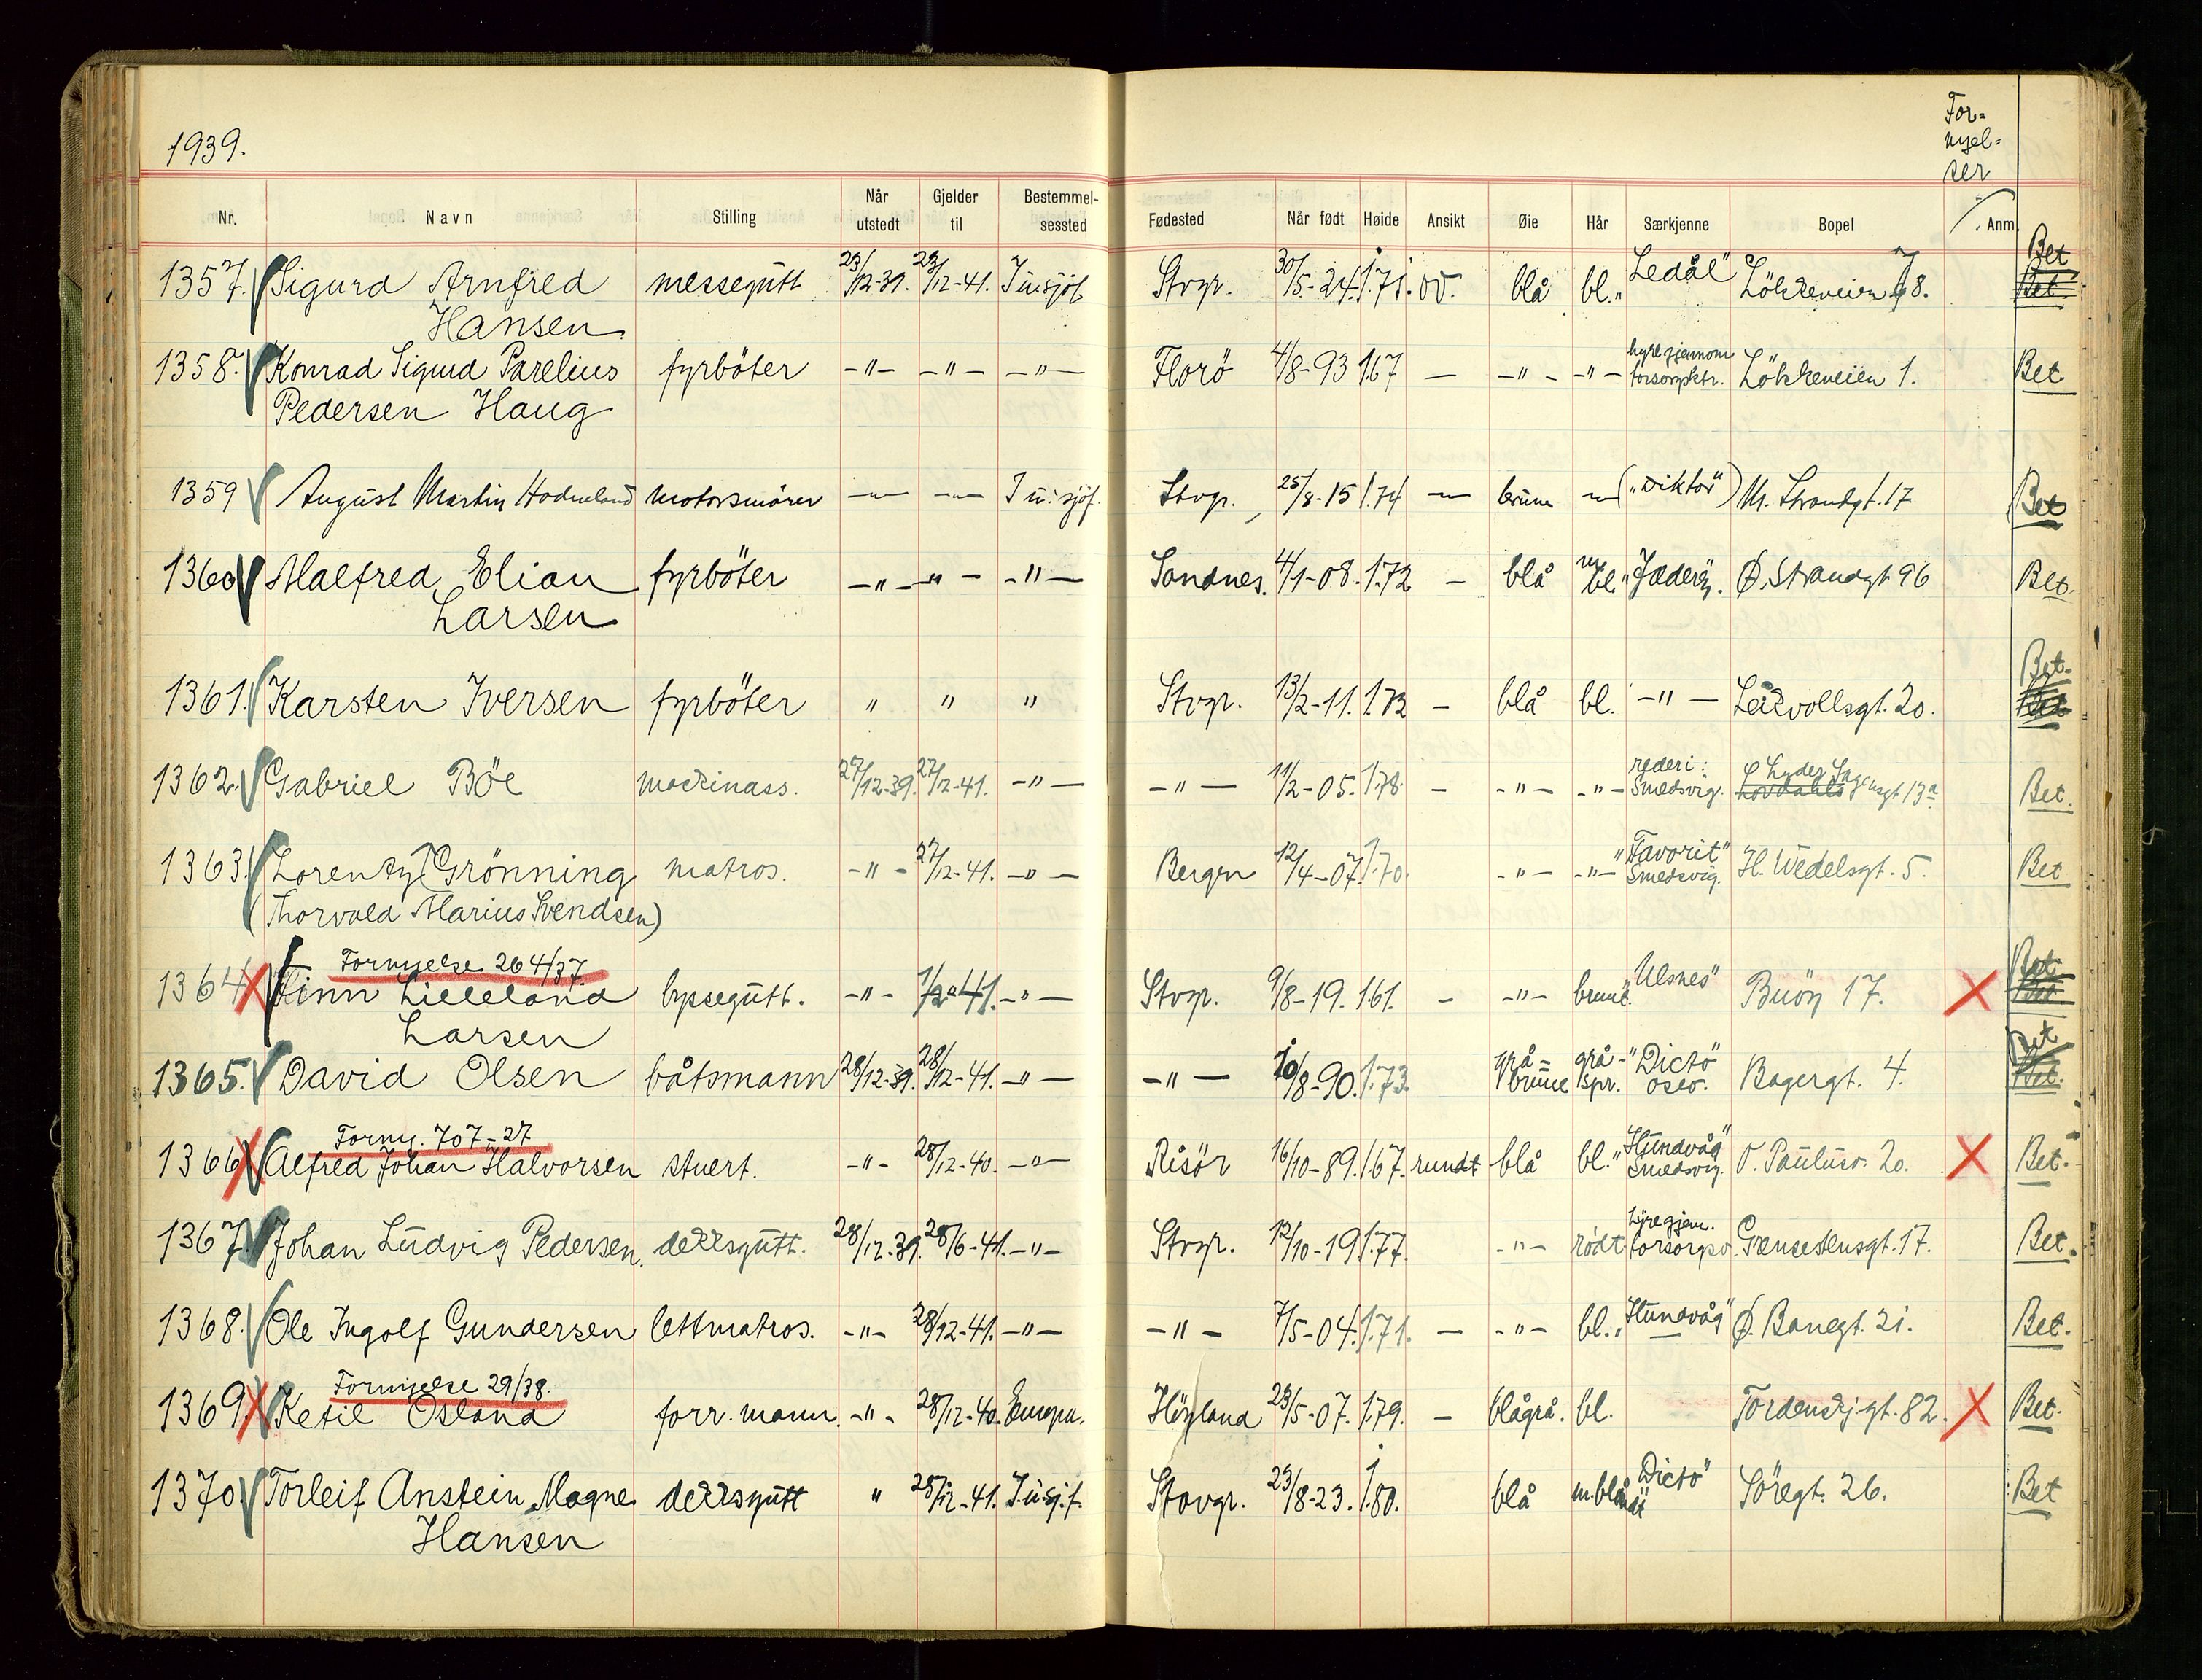 1939.
For-
nyel-
ser
Nr. Navn Stilling Når utstedt Gjelder til Bestemmel-sessted Fødested Når født Høide Ansikt Øie Hår Særkjenne Bopel Anm.
1357. Sigurd Arnfred messegutt 23/12-39. 23/12-41. Stvgr. 30/5-24. 1.71. ov. blå bl. "Ledål" Lökkeveien 78. Bet Bet.
Hansen
1358. Konrad Sigurd Parelius fyrböter -"- -"- -"- Florö 4/8-93 1.67 — -"- -"- hyre gjennom forsorgsktr. Lökkeveien 1. Bet
Pedersen Haug
1359 August Martin Hodneland motorsmörer -"- -"- Stvgr. 25/8-15 1.74 — brune -"- ("Diktö") N. Strandgt. 17 Bet
1360 Alalfred Elian fyrböter -"- -"- -"- Sandnes. 4/1-08. 1.72 - blå bl. "Jæderen". Ø. Strandgt 96 Bet.
Larsen
1361. Karsten Iversen fyrböter " " " Stvgr. 13/2-11. 1.72 - blå bl. -"- Leirvollsgt. 20. Bet. Bet
1362. Gabriel Böe maskinass. 27/12-39. 27/12-41. -"- -"- 11/2-05. 1.78. - -"- -"- rederi: Smedsvig. Lyder Sagensgt 13a Bet.
1363. Lorentz Grönning matros. -"- 27/12-41. -"- Bergen 12/4-07. 1.70. -"- -"- "Favorit" Smedsvig. H. Wedelsgt. 5. Bet
(Thorvald Marius Svendsen)
Fornyelse 264/37.
1364 Finn Lilleland byssegutt. -"- -"- Stvgr. 9/8-19. 1.61. - -"- brunt. "Ulsnes" Buöy 17. Bet Bet
Larsen
1365. David Olsen båtsmann 28/12-39. 28/12-41. -"- -"- 10/8-90. 1.73. grå-brune grå-spr. "Dictö" Oslo. Bagergt. 4. Bet Bet.
Forny. 707-27
1366 Alfred Johan Halvorsen stuert. -"- 28/12-40. -"- Risör 16/10-89. 1.67. rundt blå bl. "Hundvåg" Smedsvig. V. Paulusv. 20. Bet.
1367. Johan Ludvig Pedersen. dekksgutt. 28/12-39. 28/6-41. -"- Stvgr. 12/10-19 1.77. -"- rødt hyre gjen. forsorgsv. Grensestensgt. 17. Bet.
1368. Ole Ingolf Gundersen lettmatros. -"- 28/12-41. -"- -"- 7/5-04. 1.71. - -"- bl. "Hundvåg" Ø. Banegt. 21. Bet.
Fornyelse 29/38.
1369. Ketil Osland forr. mann. -"- 28/12-40. Europa. Höyland 23/5-07. 1.79. - blågrå. bl. Tordenskj.gt. 82. Bet.
1370. Torleif Anstein Magne dekksgutt " 28/12-41. Stavgr. 23/8-23. 1.80. blå "Dictö" Söregt. 26. Bet
Hansen